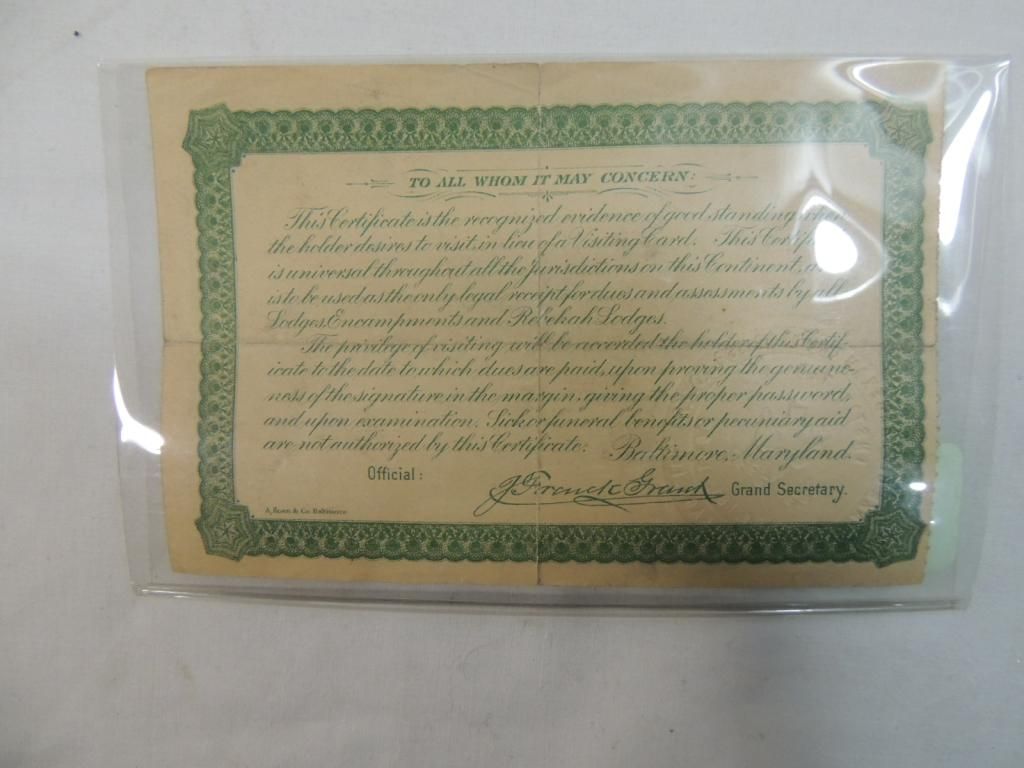 TO ALL WHOM IT MAY CONCERN:
This Certificate is the recognized evidence of good standing when
the holder desires to visit, in lieu of a Visiting Card. This
is universal throughout all the jurisdictions on this Continent,
is to be used as the only legal receipt for dues and assessments by all
Lodges, Encampments and Rebekah Lodges.
The privilege of visiting will be accorded the holder of this Certif-
icate to the date to which dues are paid, upon proving the genuine-
ness of the signature in the margin, giving the proper password,
and upon examination. Sick or funeral benefits or pecuniary aid
are not authorized by this Certificate. Baltimore, Maryland.
Official: J Frank Grant Grand Secretary.
A. Hoen & Co. Baltimore